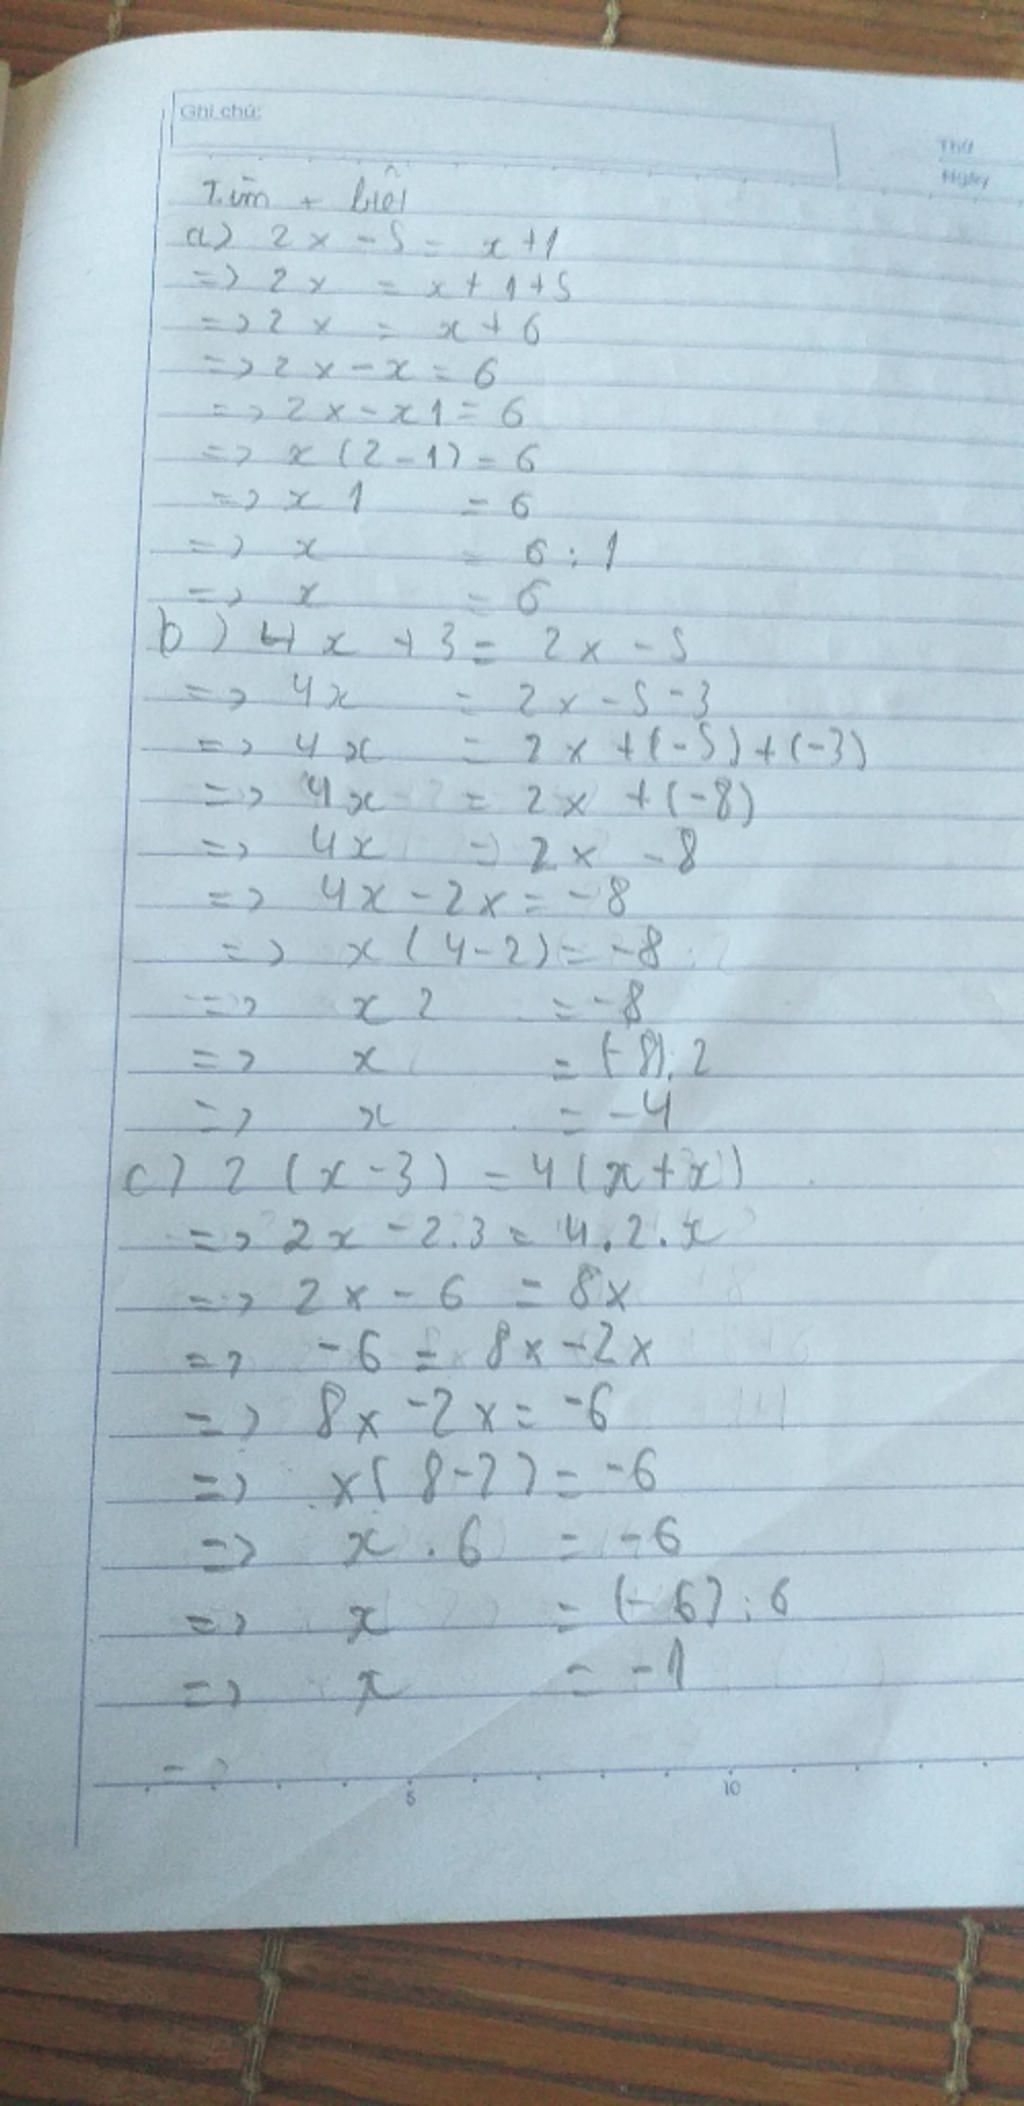 Ghi chú:
Thứ
Ngày
Tìm x biết
a) 2x - 5 = x + 1
=> 2x = x + 1 + 5
=> 2x = x + 6
=> 2x - x = 6
=> 2x - x1 = 6
=> x (2 - 1) = 6
=> x 1 = 6
=> x = 6 : 1
=> x = 6
b) 4x + 3 = 2x - 5
=> 4x = 2x - 5 - 3
=> 4x = 2x + (-5) + (-3)
=> 4x = 2x + (-8)
=> 4x = 2x - 8
=> 4x - 2x = -8
=> x (4 - 2) = -8
=> x 2 = -8
=> x = (-8) : 2
=> x = -4
c) 2 (x - 3) = 4 (x + x)
=> 2x - 2.3 = 4.2.x
=> 2x - 6 = 8x
=> -6 = 8x - 2x
=> 8x - 2x = -6
=> x (8 - 2) = -6
=> x . 6 = -6
=> x = (-6) : 6
=> x = -1
=>
5 10